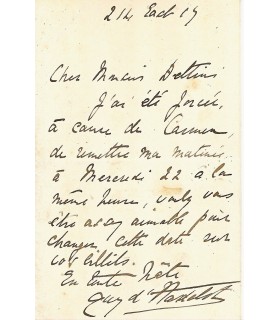 214 East 19
Cher Monsieur Dettins
J'ai été forcée,
à cause de Carmen,
de remettre ma matinée
à Mercredi 22 à la
même heure, voulez vous
être assez aimable pour
changer cette date sur
vos billets.
En toute hâte